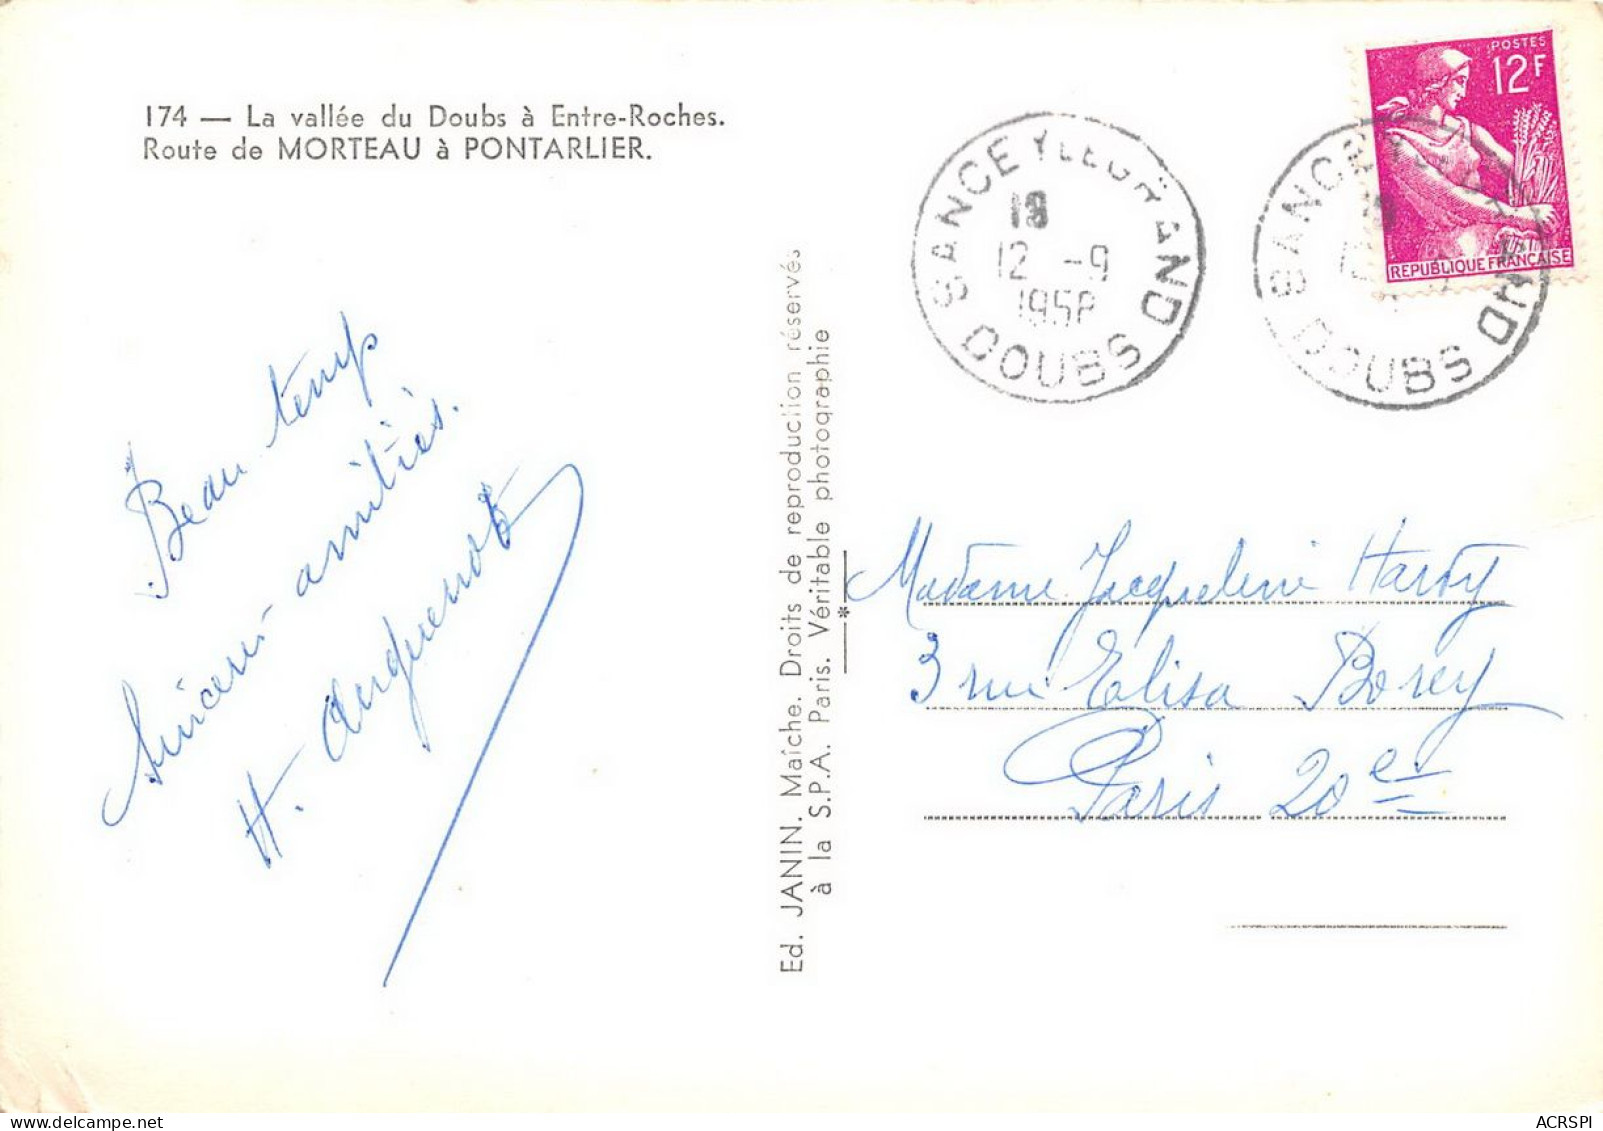 174 — La vallée du Doubs à Entre-Roches.
Route de MORTEAU à PONTARLIER.
Beau temps
Sincères amitiés.
H.
Ed. JANIN. Maîche. Droits de reproduction réservés
à la S.P.A. Paris. Véritable photographie
SANCEY LE GRAND
18
12 -9
1958
DOUBS
POSTES
12F
REPUBLIQUE FRANÇAISE
SANCEY LE GRAND
DOUBS
Madame Jacqueline Hardy
3 rue Elisa Borey
Paris 20e
ACRSPI